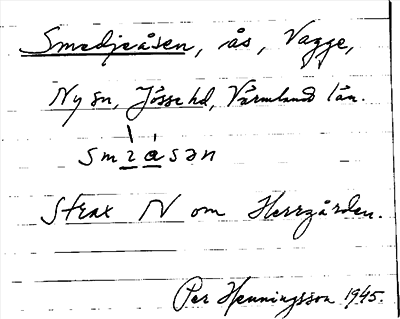 Smedjeåsen, ås, Vagge,
Ny sn, Jösse hd, Värmland län.
smɩ̀ásən
Strax N om Herrgården.
Per Henningsson 1945.